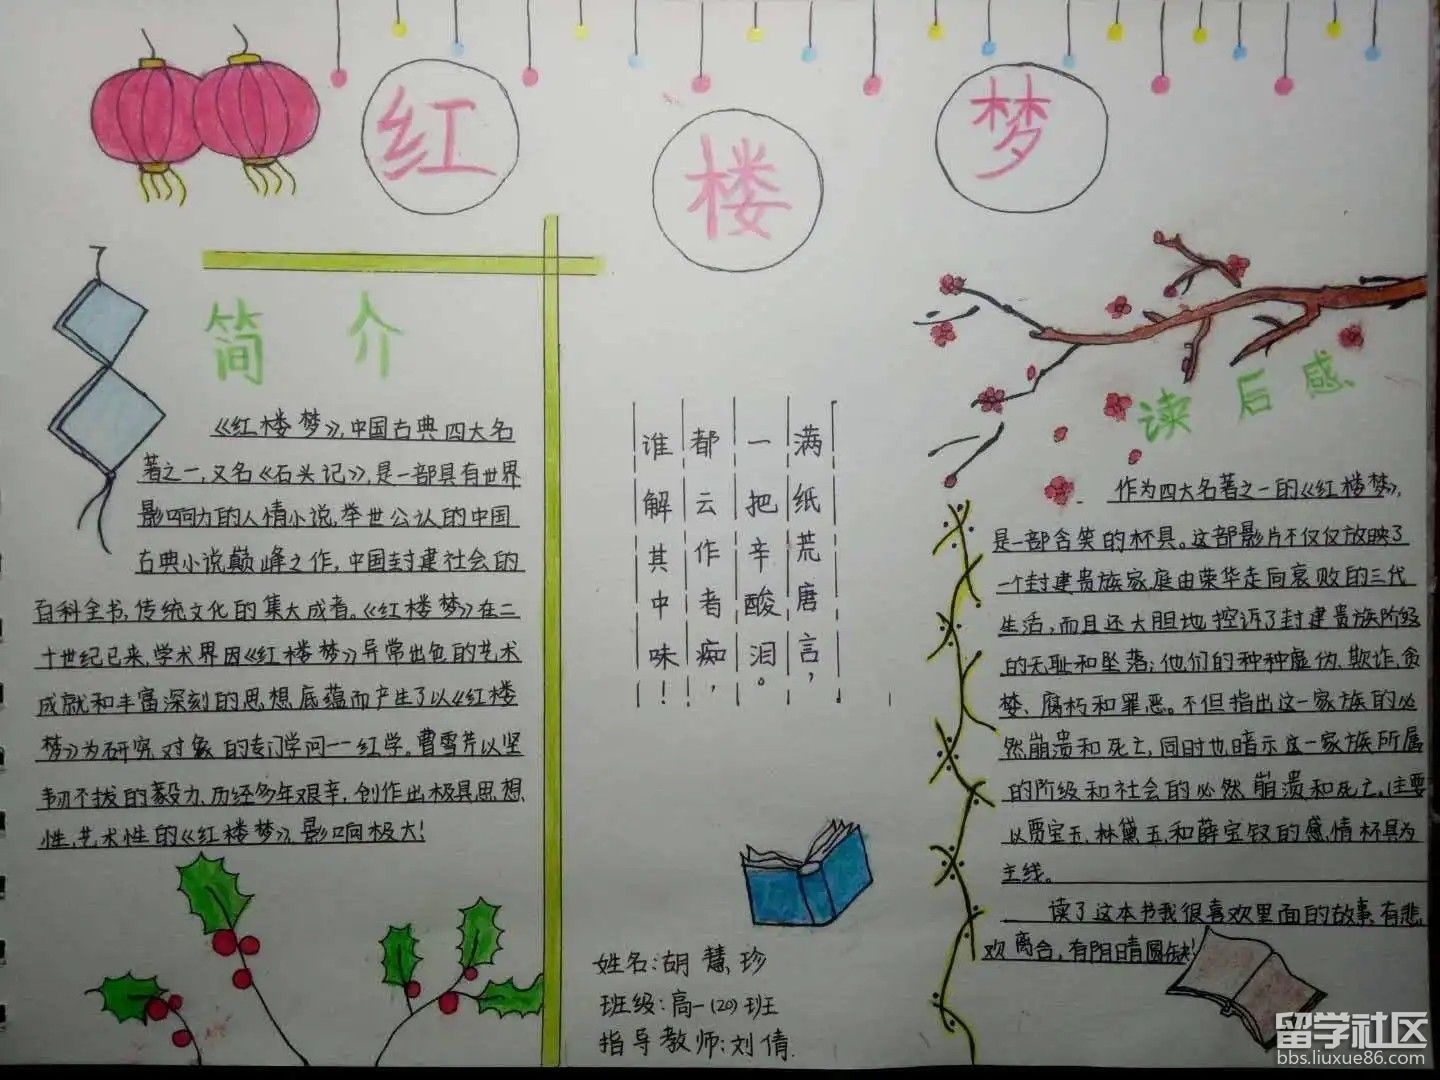 红 楼 梦
简 介
《红楼梦》,中国古典四大名
著之一,又名《石头记》,是一部具有世界
影响力的人情小说,举世公认的中国
古典小说巅峰之作,中国封建社会的
百科全书,传统文化的集大成者。《红楼梦》在二
十世纪已来,学术界因《红楼梦》异常出色的艺术
成就和丰富深刻的思想底蕴而产生了以《红楼
梦》为研究对象的专门学问一一红学。曹雪芹以坚
韧不拔的毅力、历经多年艰辛,创作出极具思想
性、艺术性的《红楼梦》,影响极大!
满纸荒唐言,
一把辛酸泪。
都云作者痴,
谁解其中味!
姓名:胡慧珍
班级:高一(20)班
指导教师:刘倩.
读后感
作为四大名著之一的《红楼梦》,
是一部含笑的杯具。这部影片不仅仅放映了
一个封建贵族家庭由荣华走向衰败的三代
生活,而且还大胆地控诉了封建贵族阶级
的无耻和坠落;他们的种种虚伪、欺诈、贪
婪、腐朽和罪恶。不但指出这一家族的必
然崩溃和死亡,同时也暗示这一家族所属
的阶级和社会的必然崩溃和死亡,主要
以贾宝玉、林黛玉、和薛宝钗的感情杯具为
主线。
读了这本书我很喜欢里面的故事,有悲
欢离合,有阴晴圆缺!
留学社区
bbs.liuxue86.com